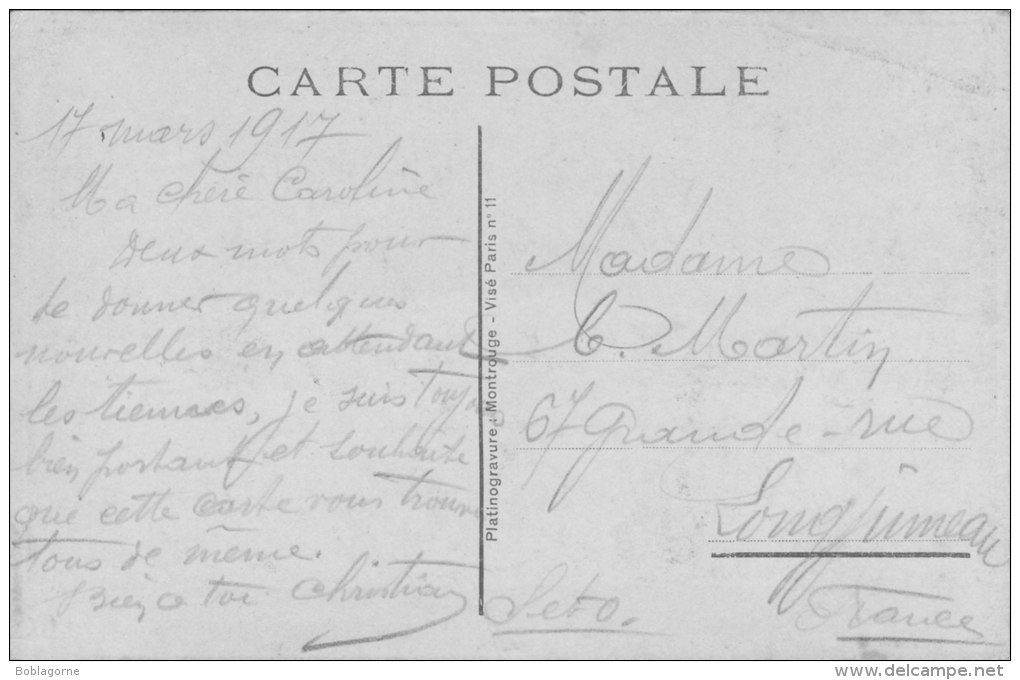 CARTE POSTALE
17 mars 1917
Ma chère Caroline
Deux mots pour
te donner quelques
nouvelles en attendant
les tiennes, je suis toujours
bien portant et souhaite
que cette carte vous trouve
tous de même.
Bien à toi Christian
Platinogravure : Montrouge - Visé Paris n° 11
Madame
C. Martin
67 grande-rue
Longjumeau
France
Boblagorne
www.delcampe.net